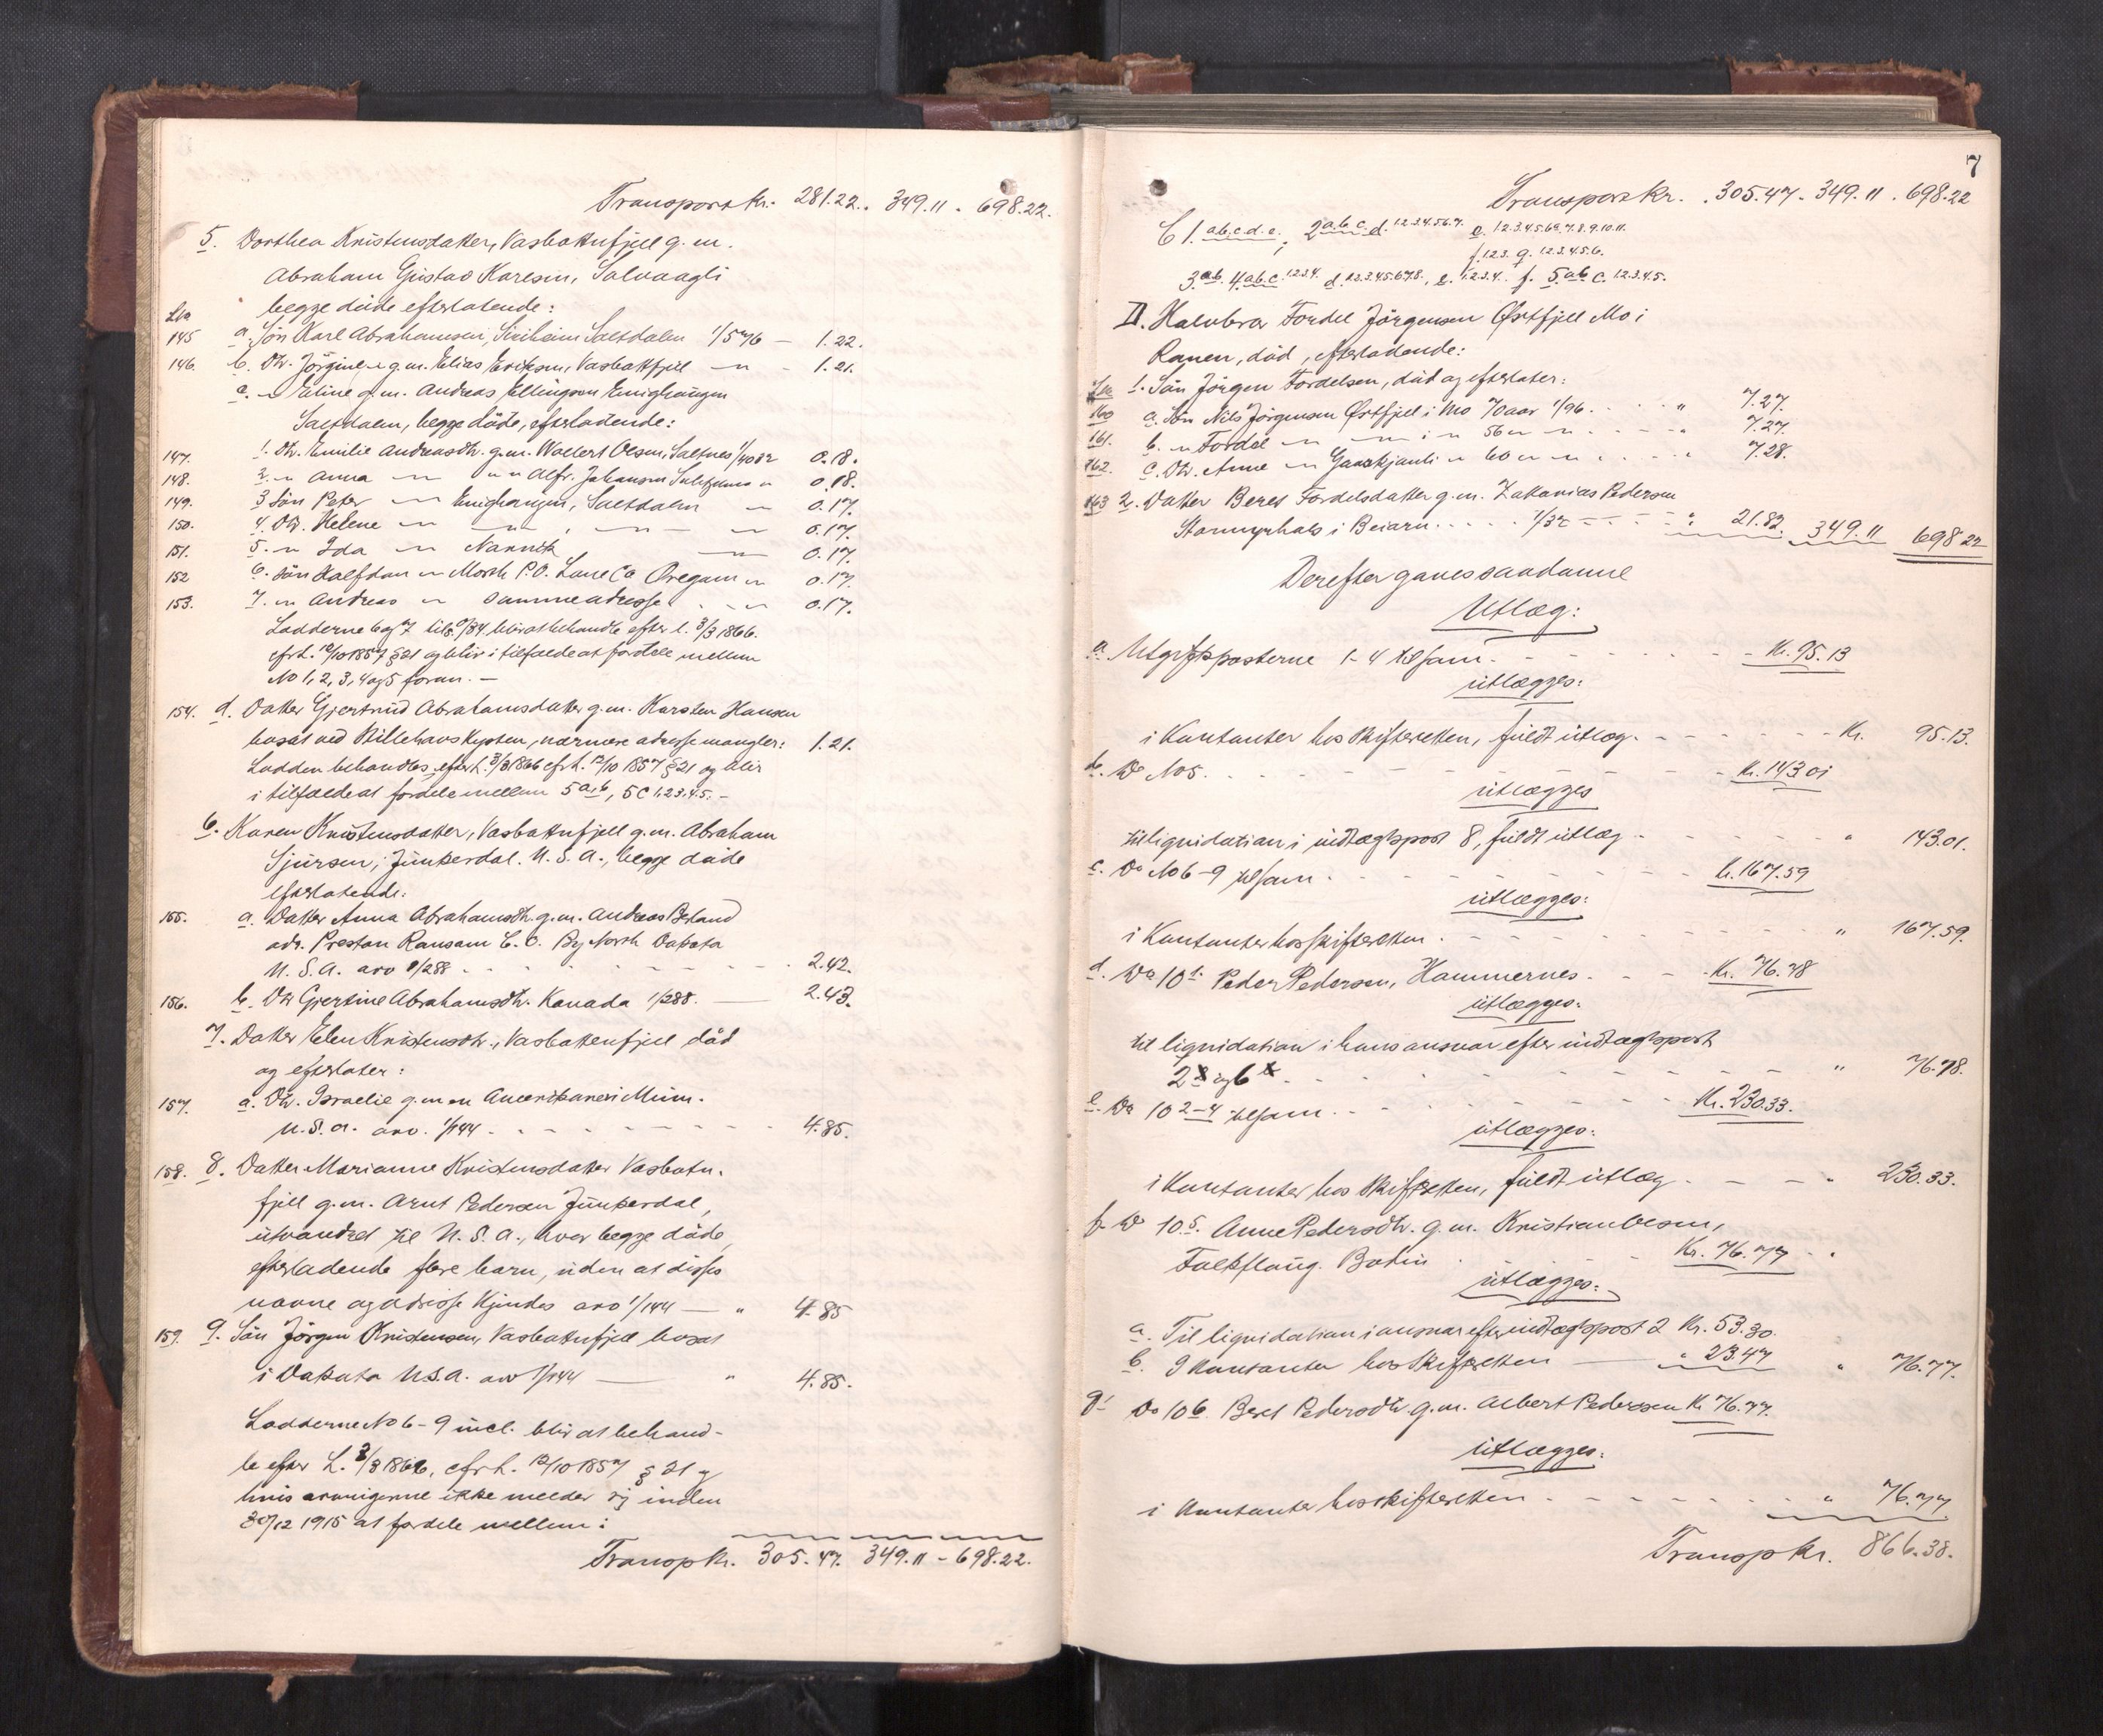 Transport kr. 281.22. 349.11 - 698.22.
5. Dorthea Kristensdatter, Vasbottnfjell g. m.
Abraham Gustav Karesin, Solvaagli
begge døde efterlatende:
Lba
145 a. Søn Karl Abrahamsen, Saltdalen 1/576 — 1.22.
146. b. Dtr. Jørgine g. m. Elias Eriksen, Vasbottfjell — " - 1.21.
c. " Eline g. m. Andreas Ellingsen Enighaugen
Saltdalen, begge døde, efterlatende:
147. 1. Dtr. Emilie Andreasdtr. g. m. Wollert Olsen, Saltnes 1/4032 0.18.
148. 2. " Anna — " " Alfr. Johansen " 0.18.
149. 3 Søn Peter — " Enighaugen, Saltdalen — 0.17.
150. 4. Dtr. Helene — " — " — " — 0.17.
151. 5. " Ida — " Narvik — " 0.17.
152 6. Søn Halfdan " Mosk P.O. Lane Co Oregann " 0.17.
153. 7. " Andreas " samme adresse . . " 0.17.
Lodderne 6 og 7 blir at behandle efter l. 3/3 1866.
cfr l. 12/10 1857 § 21 og blir i tilfælde at fordele mellem
No 1, 2, 3, 4 og 5 foran. —
154. d. Datter Gjertrud Abrahamsdatter g. m. Karsten Hansen
bosat ved Stillehavskysten, nærmere adresse mangler: 1.21.
Lodden behandles efter l. 3/3 1866 cfr l. 12/10 1857 § 21 og blir
i tilfælde at fordele mellem 5 a, b, 5 c 1.2.3.4.5. —
6. Karen Kristensdatter, Vasbottnfjell g. m. Abraham
Sjursen, Junkerdal. U. S. A., begge døde
efterlatende:
155. a. Datter Anna Abrahamsdtr. g. m. Andreas
adr. Preston Ransam C. O. By North Dakota
U. S. A. arv 1/288 - - - - 2.42.
156. b. Dtr Gjertine Abrahamsdtr. Kanada 1/288. — 2.43.
7. Datter Elen Kristensdtr., Vasbottenfjell død
og efterlater:
157. a. Dtr. Israelie g. m. en Amerikaner i Minn.
U. S. A. arv. 1/144 - - - - 4.85.
158. 8. Datter Marianne Kristensdatter Vasbotn-
fjell g. m. Arnt Pedersen Junkerdal,
utvandret til U. S. A., hvor begge døde,
efterladende flere barn, uden at disses
navne og adresse kjendes arv 1/144 — " 4.85
159. 9. Søn Jørgen Kristensen, Vasbottnfjell bosat
i Dakota U.S.A. arv 1/144 — " 4.85.
Lodderne No 6-9 incl. blir at behand-
le efter L. 3/3 1866, cfr l. 12/10 1857 § 21 og
hvis arvingerne ikke melder sig inden
30/12 1915 at fordele mellem:
Transp kr. 305.47. 349.11 - 698.22.
7
Transport kr. . 305.47. 349.11 . 698.22
C 1. a.b.c.d.e. ; 2 a.b.c. d. 1.2.3.4.5.6.7. e. 1.2.3.4.5.6.7.8.9.10.11.
f. 1.2.3. g. 1.2.3.4.5.6.
3. a.b. 4. a.b.c. 1.2.3.4. d. 1.2.3.4.5.6.7.8., e. 1.2.3.4. f. 5. a.b. c. 1.2.3.4.5.
D. Halvbror Fordel Jørgensen Østfjell Mo i
Ranen, død, efterladende:
Lba 1. Søn Jørgen Fordelsen, død og efterlater:
160 a. Søn Nils Jørgensen Østfjell i Mo 70 aar 1/96 . . . " 7.27.
161. b. " Fordel — " — " i " 56 " " . - - " 7.27.
162. c. Dtr. Anne — " " 60 " " . . . . 7.28.
163 2. Datter Beret Fordelsdatter g. m. Zakarias Pedersen
Stormyrhals i Beiarn . . . . 1/32 - - - - " 21.82. 349.11 698.22
Derefter gjøres saadanne
Utlæg:
a. Utgiftsposterne 1-4 tilsam. - - - - kr. 95.13
utlægges:
i kontanter hos skifteretten, fuldt utlæg. - - - - - Kr. 95.13.
b. Do No 5. . - - - - - - - kr. 143.01
utlægges
til liquidation i indtægtspost 8, fuldt utlæg - - - - " 143.01.
c. Do No 6-9 tilsam. - - - - - kr. 167.59
utlægges:
i Kontanter hos skifteretten . - - - - - - " 167.59.
d. Do 10 1. Peder Pedersen, Hammernes. - - - Kr. 76.78
utlægges:
til liquidation i hans ansvar efter indtægtspost
2 og 6 . - - - - - - - - " 76.78.
e. Do 10 2-4 tilsam. - - - - - Kr. 230.33.
utlægges:
i Kontanter hos skifteretten, fuldt utlæg - - - " 230.33.
f. Do 10 5. Anne Pedersdtr. g. m. Kristian Olsen,
Bodin . Kr. 76.77 - "
utlægges:
a. Til liquidation i ansvar efter indtægtspost 2 Kr. 53.30.
b. I kontanter hos skifteretten — " 23.47 " 76.77.
g. Do 10 6. Beret Pedersdtr. g. m. Albert Pederssen Kr 76.77.
utlægges:
i kontanter hos skifteretten - - - - - " 76.77
Transp kr. 866.38.